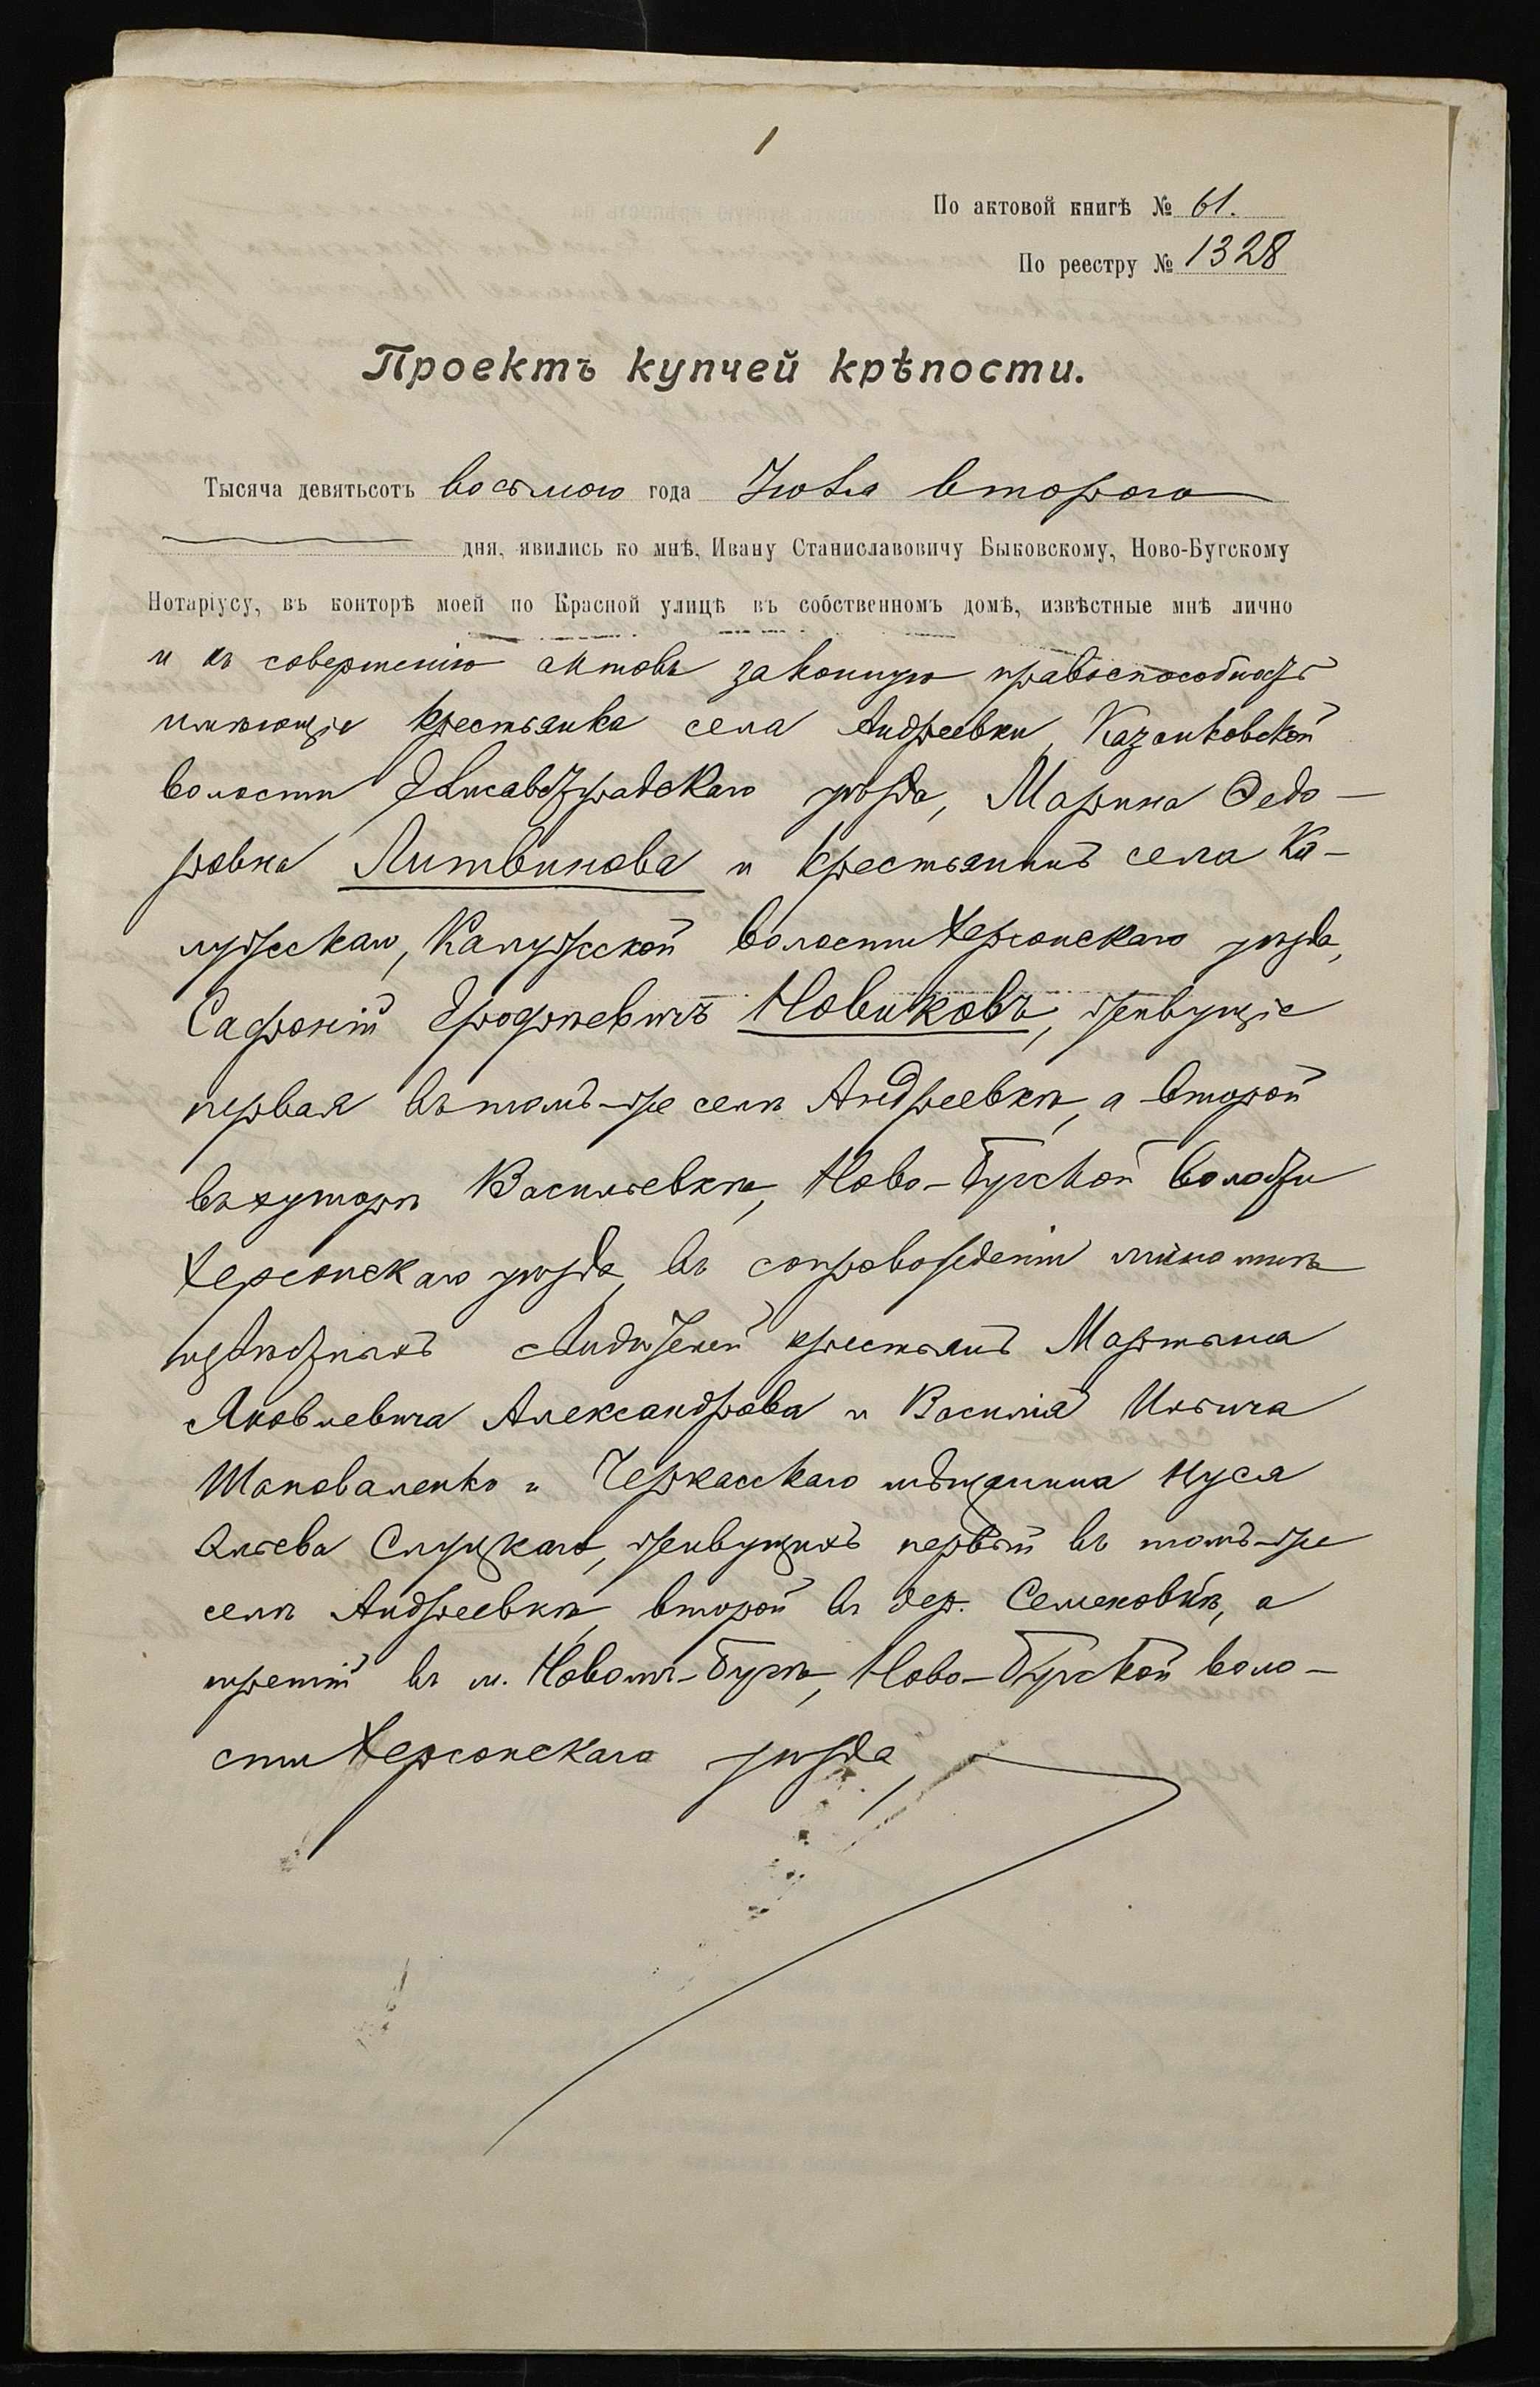 1
По актовой книгѣ № 61.
По реестру № 1328
Проектъ купчей крѣпости.
Тысяча девятьсотъ восьмого года Іюля второго
дня, явились ко мнѣ, Ивану Станиславовичу Быковскому, Ново-Бугскому
Нотаріусу, въ конторѣ моей по Красной улицѣ въ собственномъ домѣ, извѣстные мнѣ лично
и къ совершенію актовъ законную правоспособность
имѣющіе крестьянка села Андреевки, Казанковской
волости Елисаветградскаго уѣзда, Марина Федо-
ровна Литвинова и крестьянинъ села Ка-
лужскаго, Калужской волости Херсонскаго уѣзда,
Сафроній Ерофѣевичъ Новиковъ, живущіе
первая въ томъ-же селѣ Андреевкѣ, а второй
въ хуторѣ Васильевкѣ, Ново-Бугской волости
Херсонскаго уѣзда, въ сопровожденіи лично мнѣ
извѣстныхъ свидѣтелей крестьянъ Мартына
Яковлевича Александрова и Василія Ильича
Шаповаленко и Черкасскаго мѣщанина Нуся
Слуцкаго, живущихъ первый въ томъ-же
селѣ Андреевкѣ, второй въ дер. Семеновкѣ, а
третій въ м. Новомъ-Бугѣ, Ново-Бугской воло-
сти Херсонскаго уѣзда,